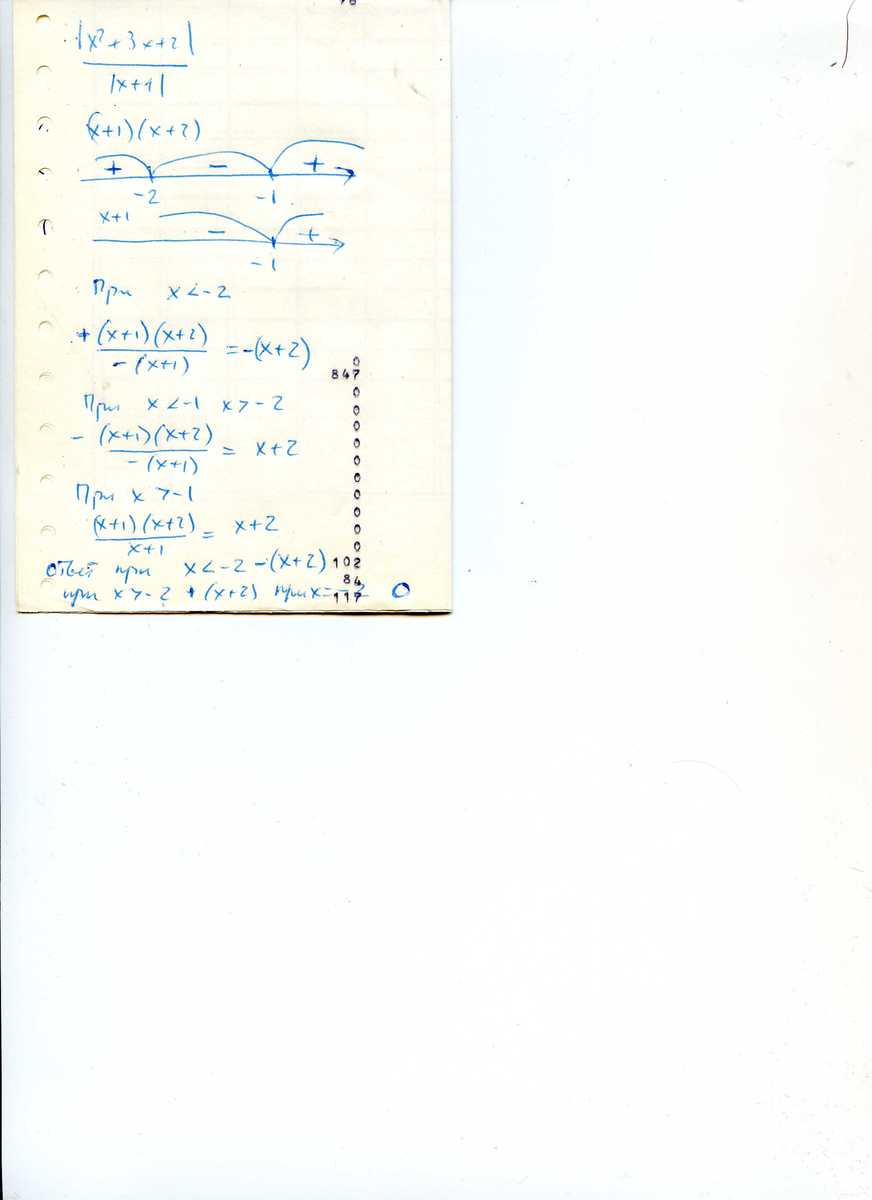 76
|x²+3x+2|
|x+1|
(x+1)(x+2)
+ - +
-2 -1
x+1 - +
-1
При x<-2
+(x+1)(x+2)
-(x+1)
=-(x+2)
0
847
0
При x<-1 x>-2
0
0
-(x+1)(x+2)
-(x+1)
= x+2
0
0
0
При x>-1
0
(x+1)(x+2)
x+1
= x+2
0
0
0
ответ при x<-2 -(x+2) 102
84
при x>-2 +(x+2) при x=-2 0
117